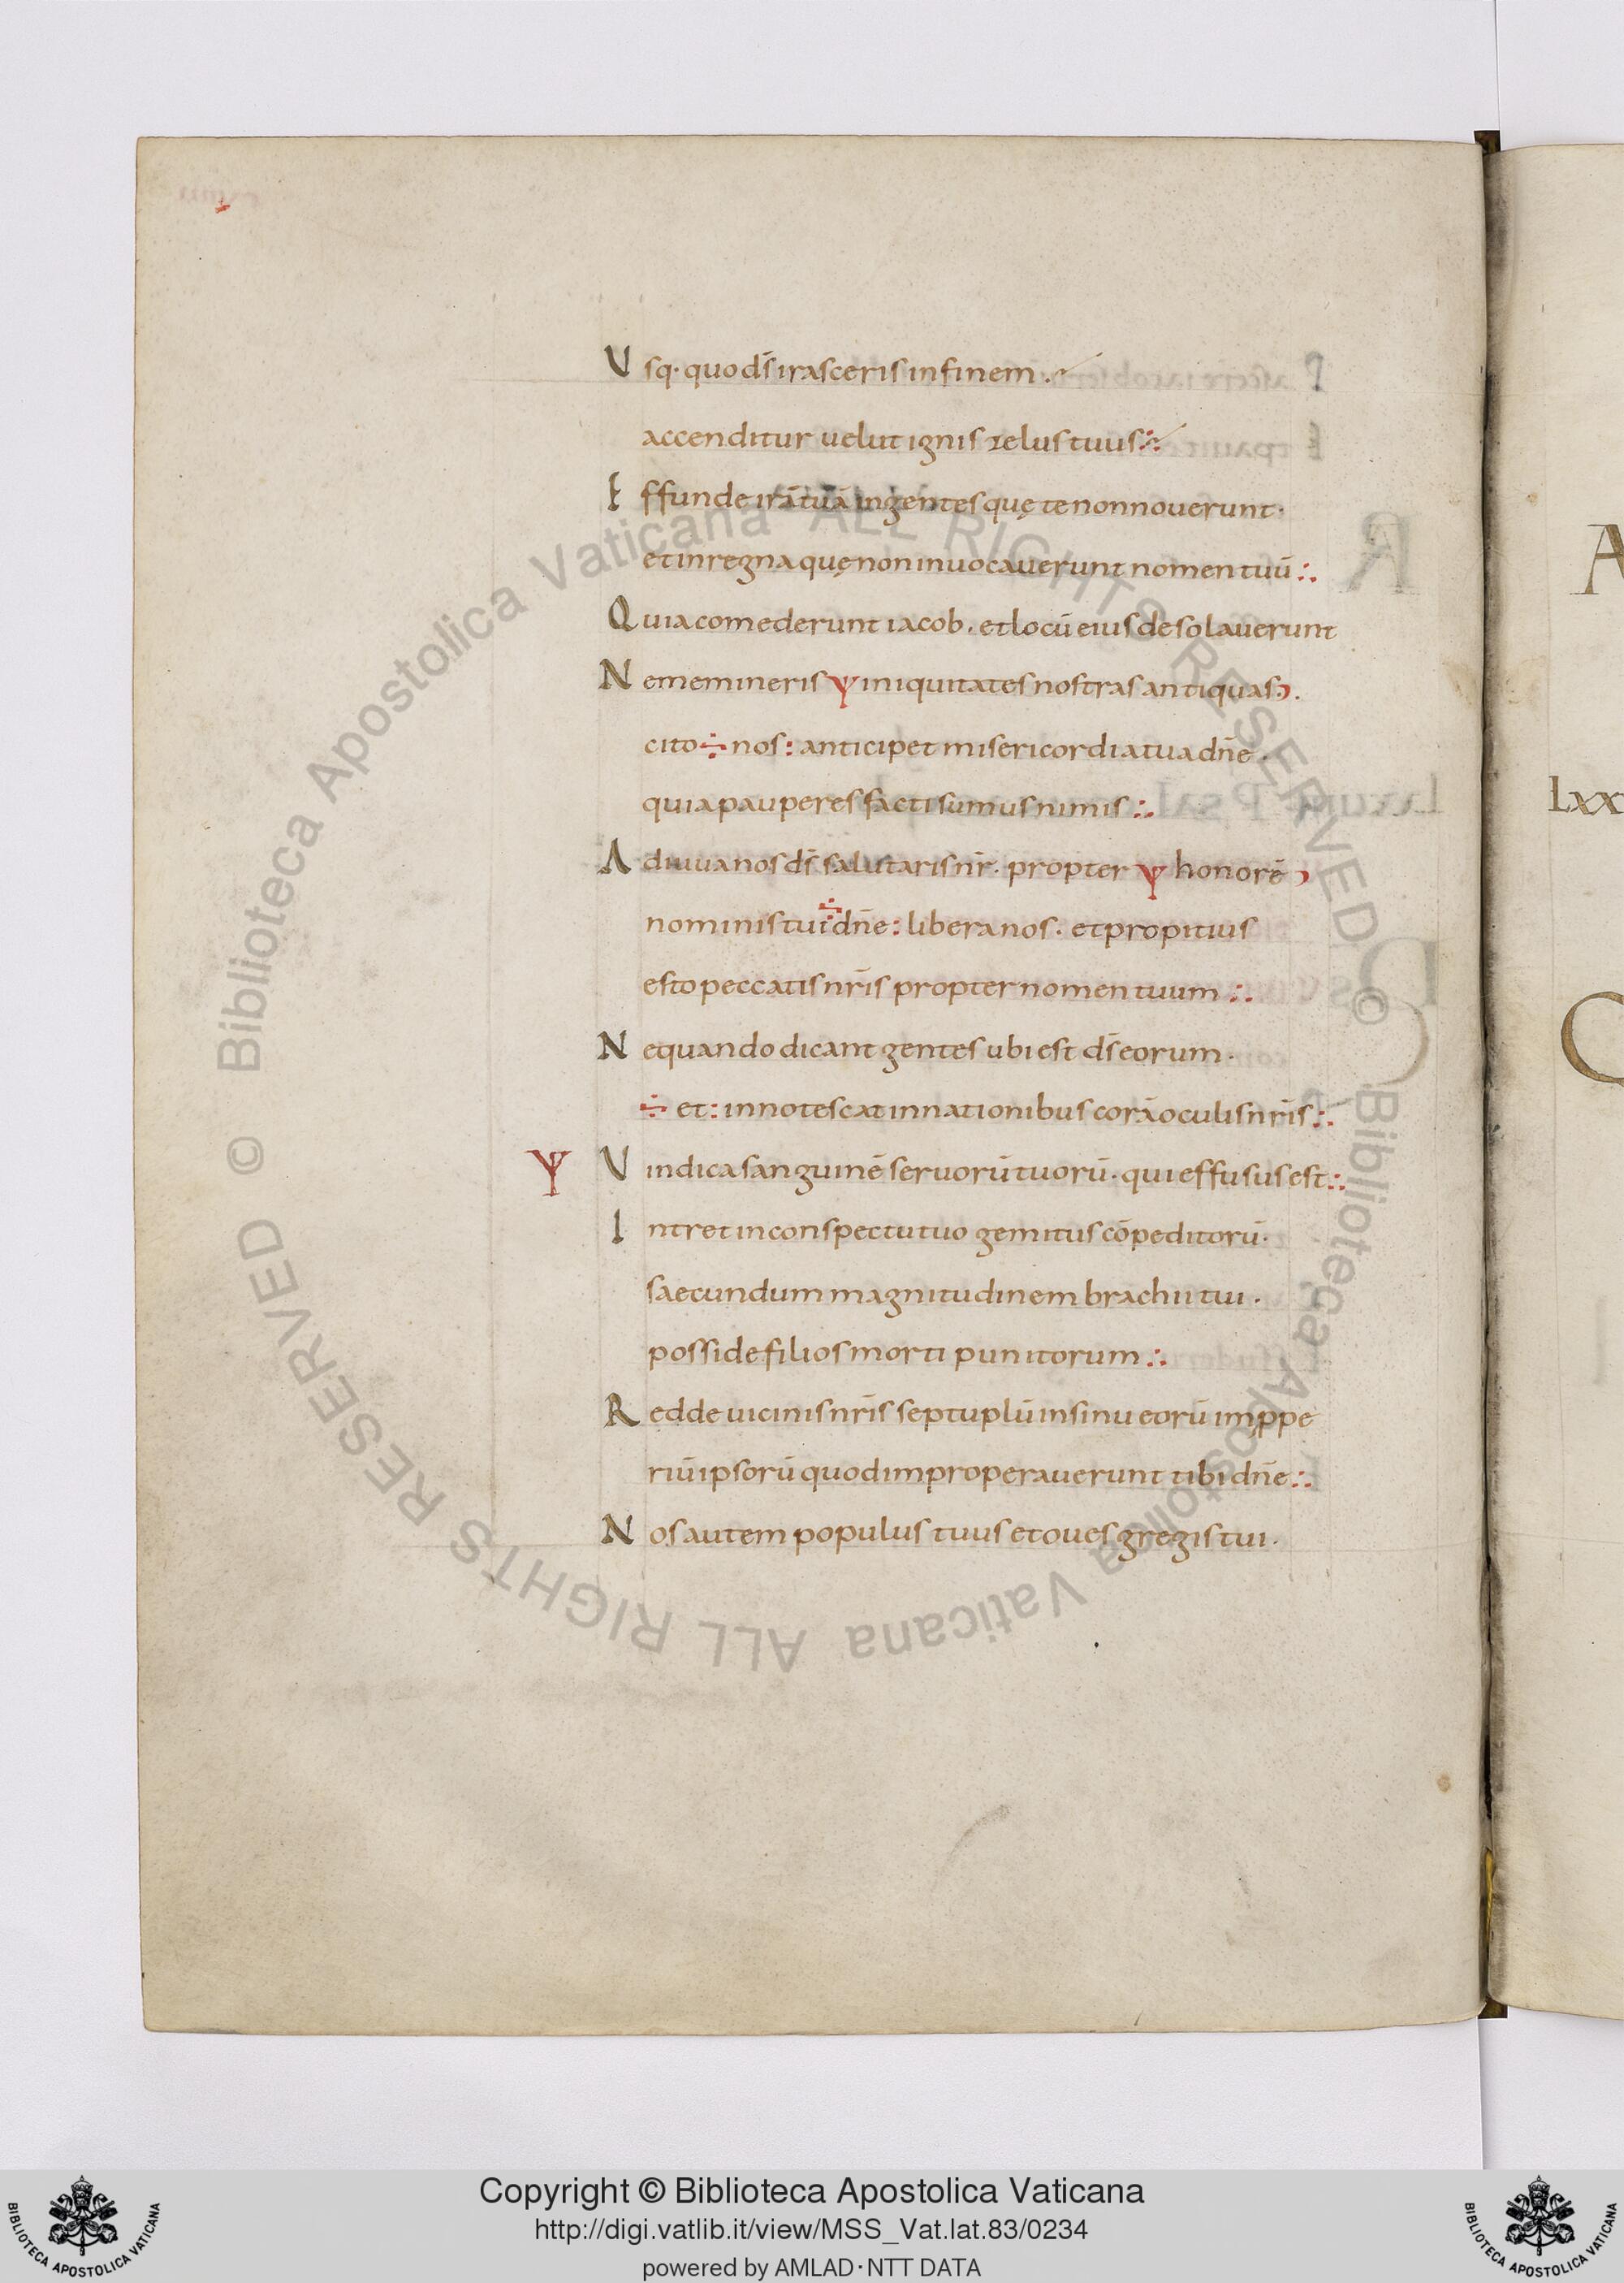 Usq· quo ds̄ irasceris in finem.
accenditur uelut ignis zelus tuus:·
Effunde irā tuā in gentes quę te non nouerunt·
et in regna quę non inuocauerunt nomen tuū:·
Quia comederunt iacob. et locū eius desolauerunt
Ne memineris Ψ iniquitates nostras antiquas ͻ.
cito ÷ nos: anticipet misericordia tua dn̄e·
quia pauperes facti sumus nimis:·
Adiuua nos ds̄ salutaris nr̄· propter Ψ honorē ͻ
nominis tui ÷ dn̄e: libera nos· et propitius
esto peccatis nr̄is propter nomen tuum:·
Ne quando dicant gentes ubi est ds̄ eorum·
÷ et: innotescat in nationibus corā oculis nr̄is:·
Ψ Uindica sanguinē seruorū tuorū· qui effusus est:·
Intret in conspectu tuo gemitus cōpeditorū·
saecundum magnitudinem brachii tui·
posside filios morti punitorum:·
Redde uicinis nr̄is septuplū in sinu eorū imꝓpe
riū ipsorū quod improperauerunt tibi dn̄e:·
Nos autem populus tuus et oues gregis tui·
A
Lxx
C
© Biblioteca Apostolica Vaticana ALL RIGHTS RESERVED © Biblioteca Apostolica Vaticana ALL RIGHTS RESERVED
Copyright © Biblioteca Apostolica Vaticana
http://digi.vatlib.it/view/MSS_Vat.lat.83/0234
powered by AMLAD·NTT DATA
BIBLIOTECA APOSTOLICA VATICANA
BIBLIOTECA APOSTOLICA VATICANA